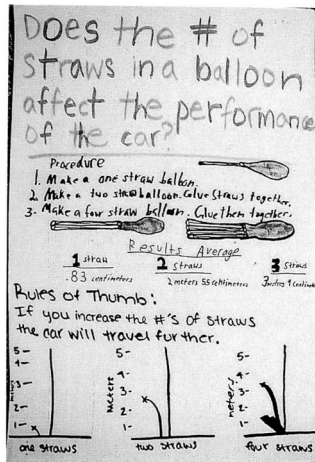 Does the # of
straws in a balloon
affect the performance
of the car?
Procedure
1. Make a one straw balloon.
2. Make a two straw balloon. Glue straws together.
3. Make a four straw balloon. Glue them together.
Results Average
1 straw
.83 centimeters
2 straws
2 meters 55 centimeters
3 straws
3 meters 1 centimeter
Rules of Thumb:
If you increase the #'s of straws
the car will travel further.
5-
4-
3-
2-
1-
meters
one straws
5-
4-
3-
2-
1-
Meters
two straws
5-
4-
3-
2-
1-
meters
four straws